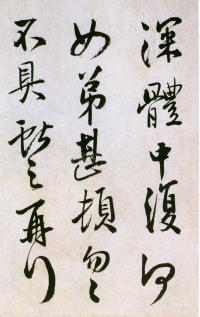 深體中復何
如弟甚頓匆々
不具獻之再拜